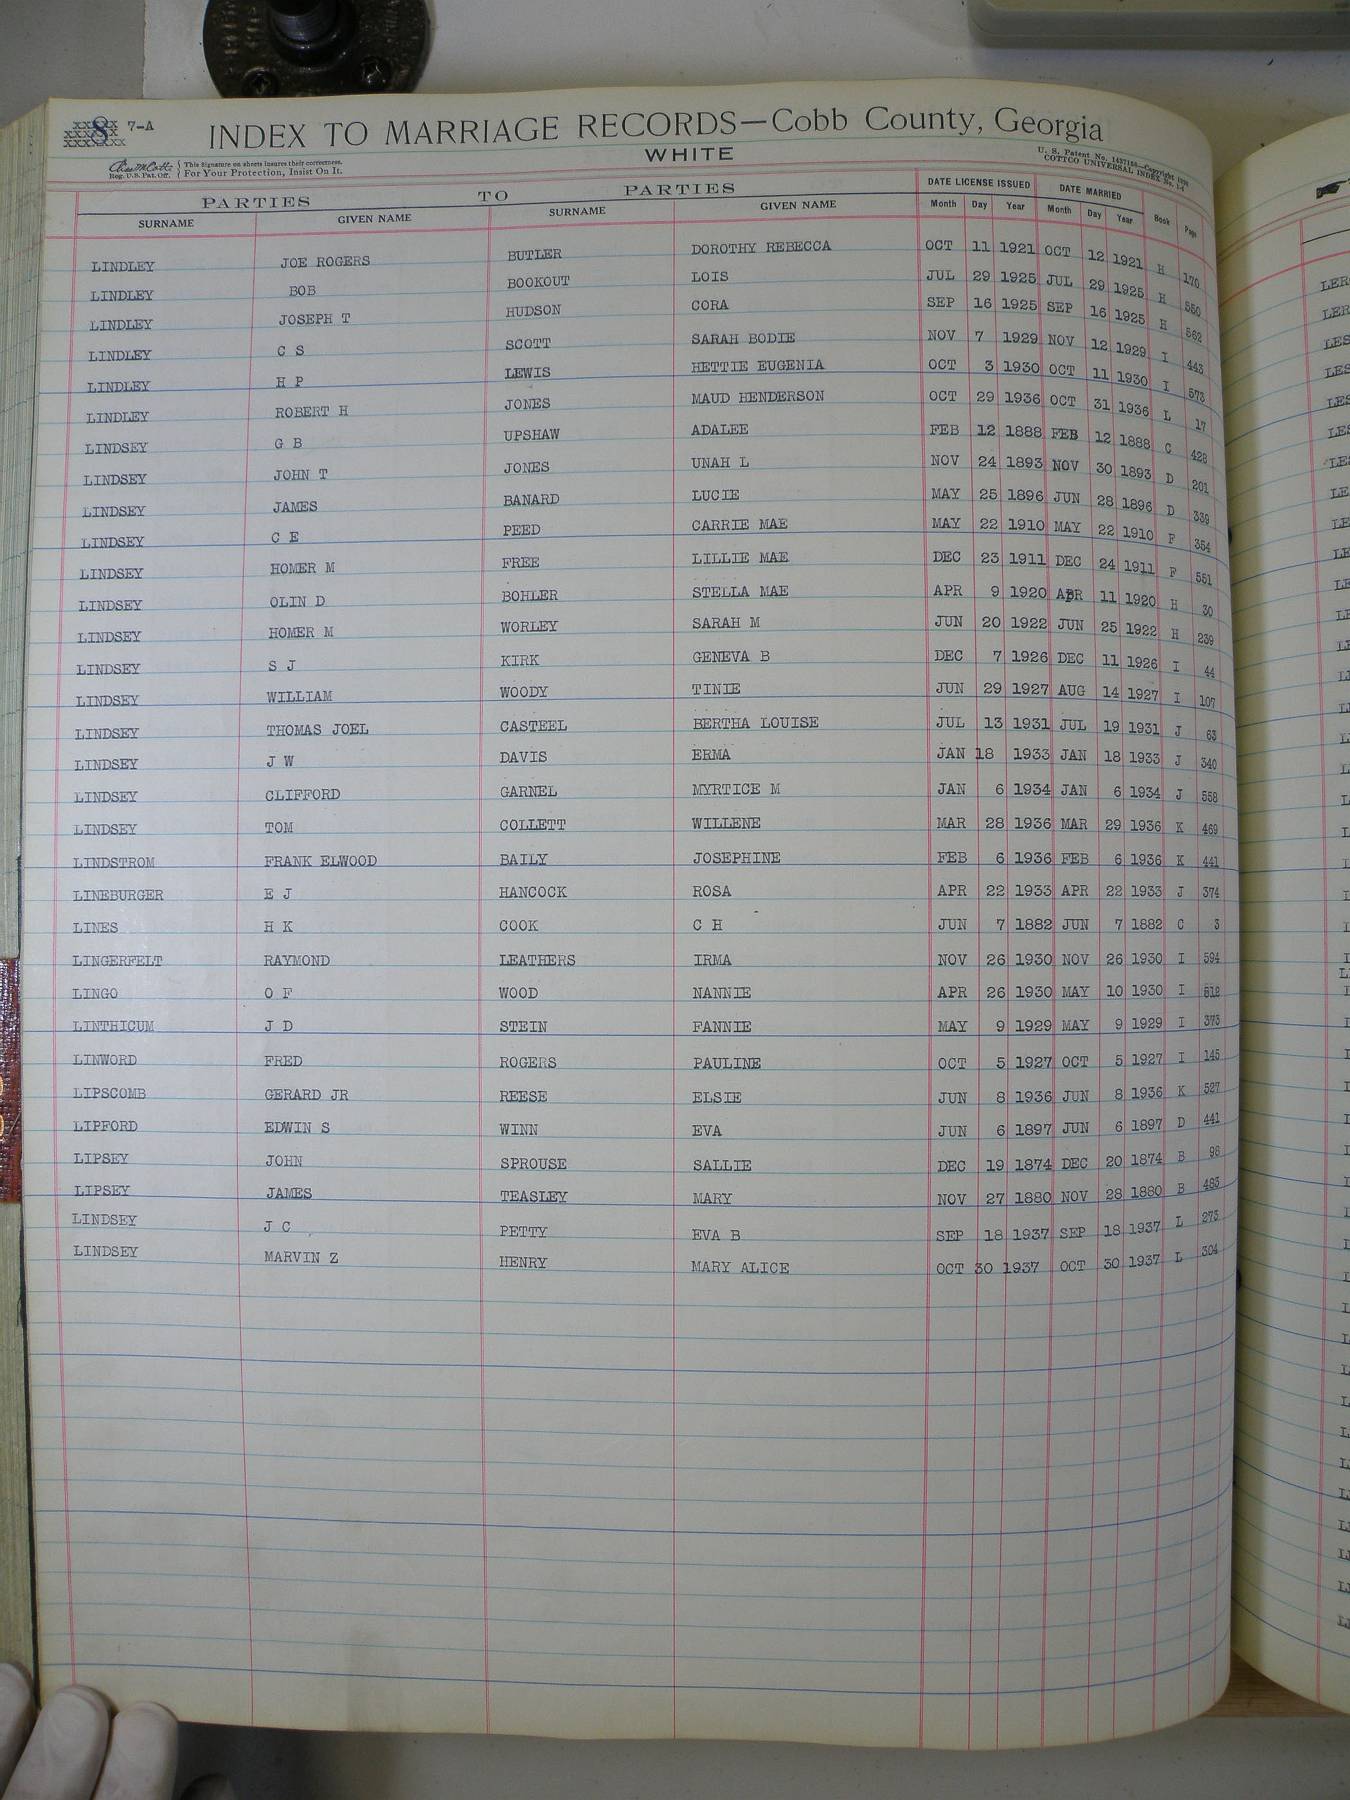 8 7-A INDEX TO MARRIAGE RECORDS—Cobb County, Georgia
WHITE
This Signature on sheets insures their correctness.
Reg. U.S. Pat. Off. For Your Protection, Insist On It.
U. S. Patent No. 1437185—Copyright
COTTCO UNIVERSAL INDEX No.
PARTIES TO PARTIES DATE LICENSE ISSUED DATE MARRIED
SURNAME GIVEN NAME SURNAME GIVEN NAME Month Day Year Month Day Year Book Page
LINDLEY JOE ROGERS BUTLER DOROTHY REBECCA OCT 11 1921 OCT 12 1921 H 170
LINDLEY BOB BOOKOUT LOIS JUL 29 1925 JUL 29 1925 H 550
LINDLEY JOSEPH T HUDSON CORA SEP 16 1925 SEP 16 1925 H 562
LINDLEY C S SCOTT SARAH BODIE NOV 7 1929 NOV 12 1929 I 443
LINDLEY H P LEWIS HETTIE EUGENIA OCT 3 1930 OCT 11 1930 I 573
LINDLEY ROBERT H JONES MAUD HENDERSON OCT 29 1936 OCT 31 1936 L 17
LINDSEY G B UPSHAW ADALEE FEB 12 1888 FEB 12 1888 C 428
LINDSEY JOHN T JONES UNAH L NOV 24 1893 NOV 30 1893 D 201
LINDSEY JAMES BANARD LUCIE MAY 25 1896 JUN 28 1896 D 339
LINDSEY C E PEED CARRIE MAE MAY 22 1910 MAY 22 1910 F 354
LINDSEY HOMER M FREE LILLIE MAE DEC 23 1911 DEC 24 1911 F 551
LINDSEY OLIN D BOHLER STELLA MAE APR 9 1920 APR 11 1920 H 30
LINDSEY HOMER M WORLEY SARAH M JUN 20 1922 JUN 25 1922 H 239
LINDSEY S J KIRK GENEVA B DEC 7 1926 DEC 11 1926 I 44
LINDSEY WILLIAM WOODY TINIE JUN 29 1927 AUG 14 1927 I 107
LINDSEY THOMAS JOEL CASTEEL BERTHA LOUISE JUL 13 1931 JUL 19 1931 J 63
LINDSEY J W DAVIS ERMA JAN 18 1933 JAN 18 1933 J 340
LINDSEY CLIFFORD GARNEL MYRTICE M JAN 6 1934 JAN 6 1934 J 558
LINDSEY TOM COLLETT WILLENE MAR 28 1936 MAR 29 1936 K 469
LINDSTROM FRANK ELWOOD BAILY JOSEPHINE FEB 6 1936 FEB 6 1936 K 441
LINEBURGER E J HANCOCK ROSA APR 22 1933 APR 22 1933 J 374
LINES H K COOK C H JUN 7 1882 JUN 7 1882 C 3
LINGERFELT RAYMOND LEATHERS IRMA NOV 26 1930 NOV 26 1930 I 594
LINGO O F WOOD NANNIE APR 26 1930 MAY 10 1930 I 512
LINTHICUM J D STEIN FANNIE MAY 9 1929 MAY 9 1929 I 373
LINWORD FRED ROGERS PAULINE OCT 5 1927 OCT 5 1927 I 145
LIPSCOMB GERARD JR REESE ELSIE JUN 8 1936 JUN 8 1936 K 527
LIPFORD EDWIN S WINN EVA JUN 6 1897 JUN 6 1897 D 441
LIPSEY JOHN SPROUSE SALLIE DEC 19 1874 DEC 20 1874 B 98
LIPSEY JAMES TEASLEY MARY NOV 27 1880 NOV 28 1880 B 483
LINDSEY J C PETTY EVA B SEP 18 1937 SEP 18 1937 L 273
LINDSEY MARVIN Z HENRY MARY ALICE OCT 30 1937 OCT 30 1937 L 304